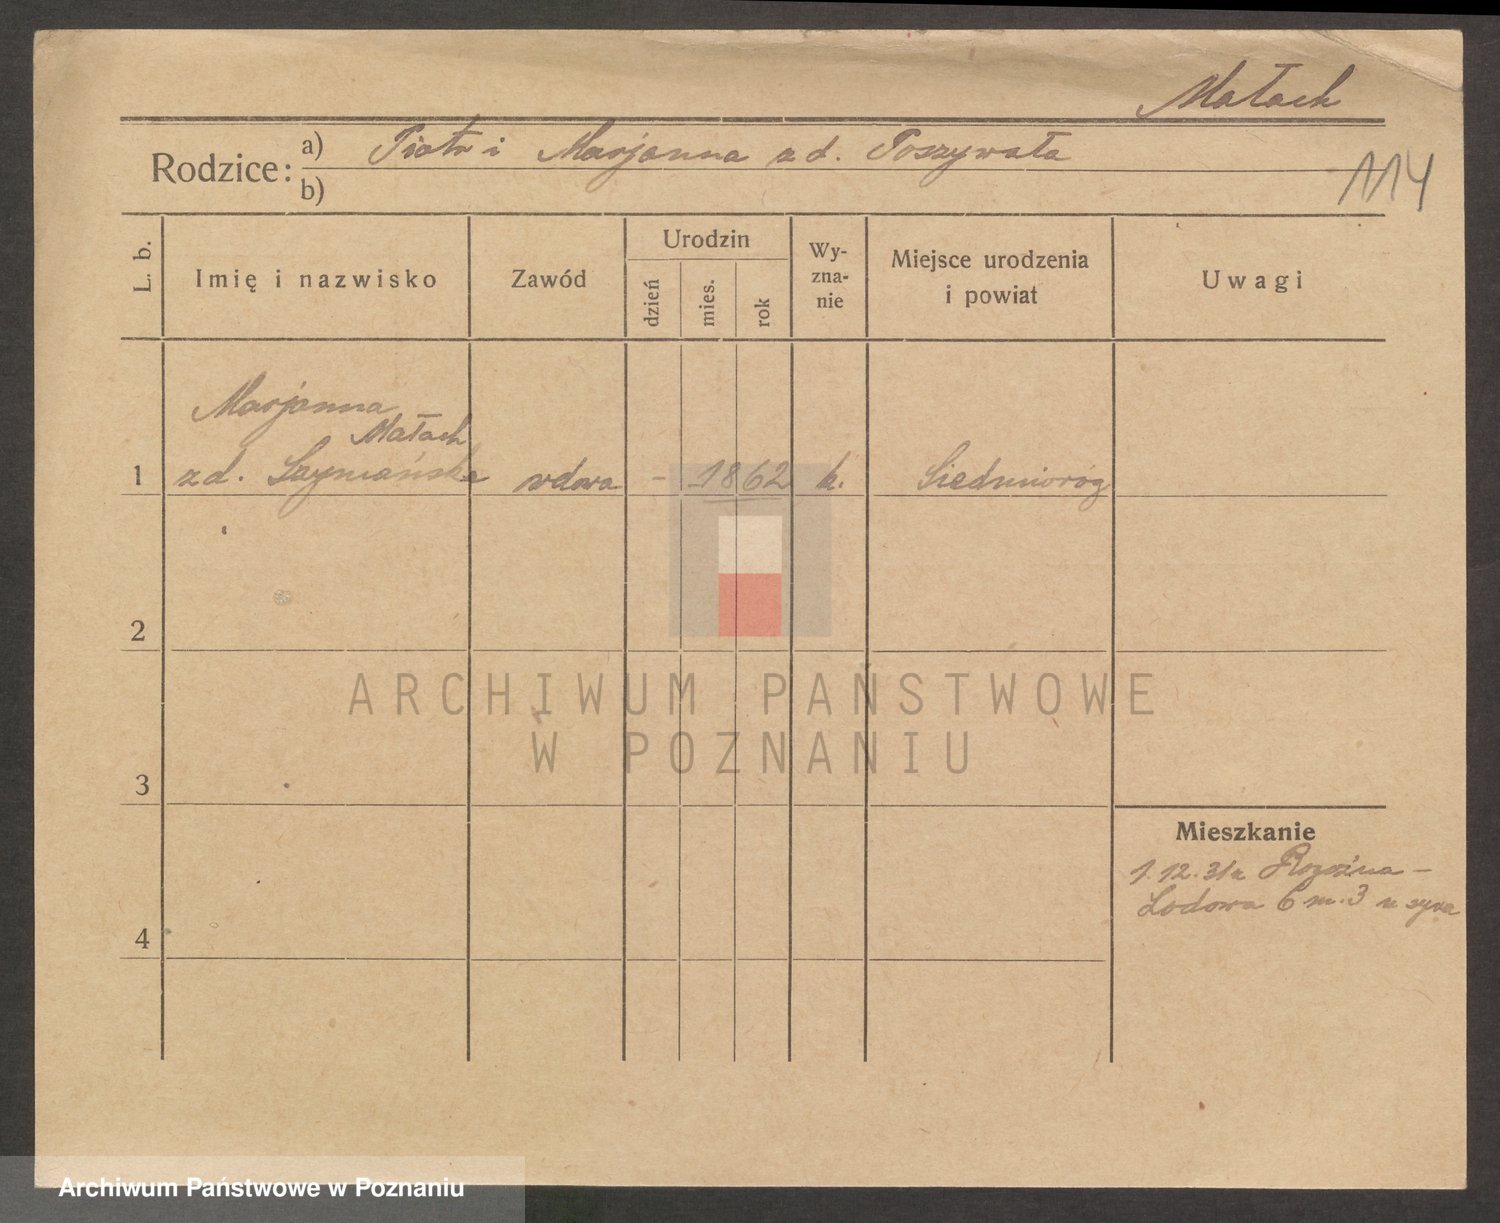 Małach
Rodzice: a) Piotr i Marjanna z d. Poszywała
b)
114
L. b.
Imię i nazwisko
Zawód
Urodzin
dzień
mies.
rok
Wy-
zna-
nie
Miejsce urodzenia
i powiat
Uwagi
Marjanna
Małach
1 z d. Szymańska wdowa - 1862 k. Siedmioróg
2
ARCHIWUM PAŃSTWOWE
W POZNANIU
3
Mieszkanie
1.12.31 z Rogoźna -
Lodowa 6 m. 3 u syna
4
Archiwum Państwowe w Poznaniu